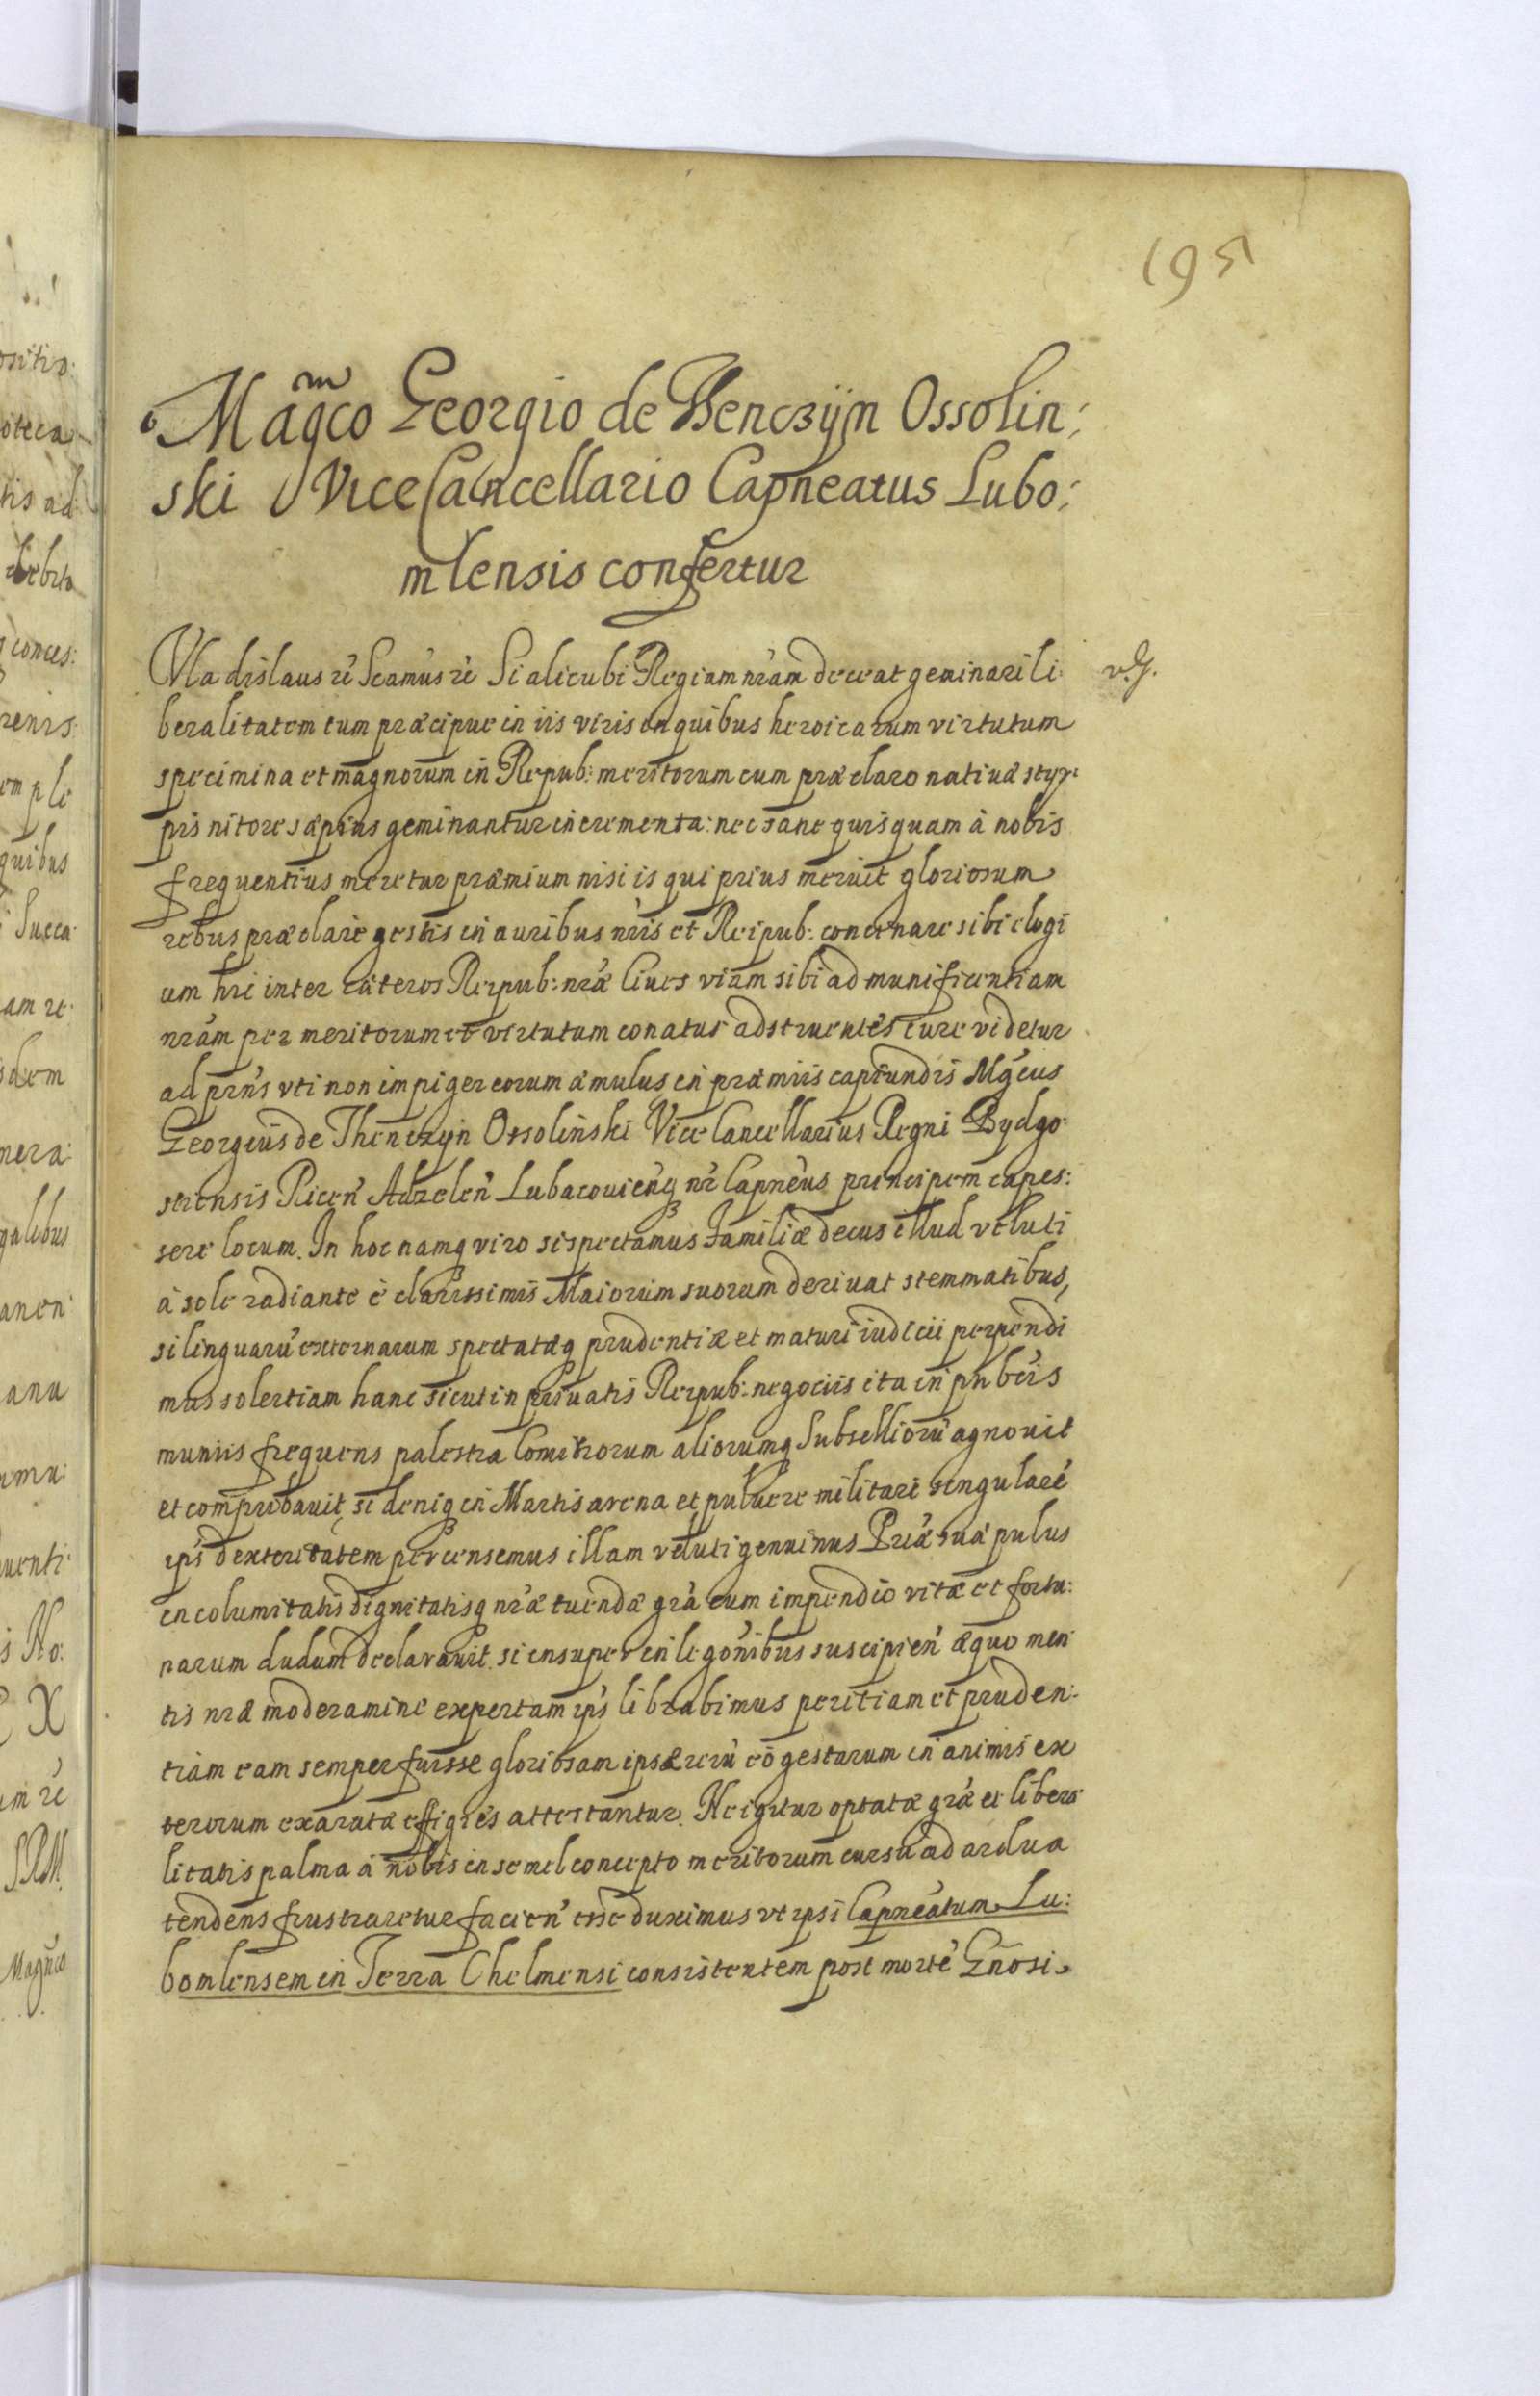 195
Magco Georgio de Thenczyn Ossolin:
ski ViceCancellario Capneatus Lubo:
mlensis confertur
Vladislaus rc Scamus rc Si alicubi Regiam nram deceat geminari li: v.g.
beralitatem tum præcipue in iis viris in quibus heroicarum virtutum
specimina et magnorum in Repub: meritorum cum præclaro nativæ styr:
pis nitore sæpius geminantur incrementa: nec sane quisquam à nobis
frequentius meretur præmium nisi is qui prius meruit gloriosum
rebus præclare gestis in auribus nris et Reipub: concinnare sibi elogi
um hic inter cæteros Reipub: nræ Cives viam sibi ad munificentiam
nram per meritorum et virtutum conatus adstruentes iure videtur
ad prns vti non impiger eorum æmulus in præmiis capiundis Mgcus
Georgius de Thenczyn Ossolinski Vice Cancellarius Regni Bydgo:
stiensis Ricen Adzelen Lubacovienq nr Capneus principem capes:
sere locum. In hoc namq viro si spectamus Familiæ decus illud veluti
à sole radiante è clarissimis Maiorum suorum derivat stemmatibus,
si linguaru externarum spectatæq prudentiæ et maturi iudicii perpendi
mus solertiam hanc sicut in privatis Reipub: negociis ita in pubcis
muniis frequens palestra Comitiorum aliorumq Subselliorū agnovit
et comprobavit, si deniq in Martis arena et pulvere militari singularē
ips dexteritatem percensemus illam veluti genuinus Priæ suæ pulus
incolumitatis dignitatisq nræ tuendæ gra cum impendio vitæ et fortu:
narum dudum declaravit. si insuper in legonibus suscipien æquo men
tis nræ moderamine expertam ips librabimus peritiam et pruden:
tiam eam semper fuisse gloriosam ipsæ reru eo gestarum in animis ex
terorum exaratæ effigies attestantur. Ne igitur optatæ græ et libera
litatis palma à nobis in semel concepto meritorum cursu ad ardua
tendens frustraretur facien esse duximus vt ipsi Capneatum Lu:
bomlensem in Terra Chelmensi consistentem post morte Gnosi